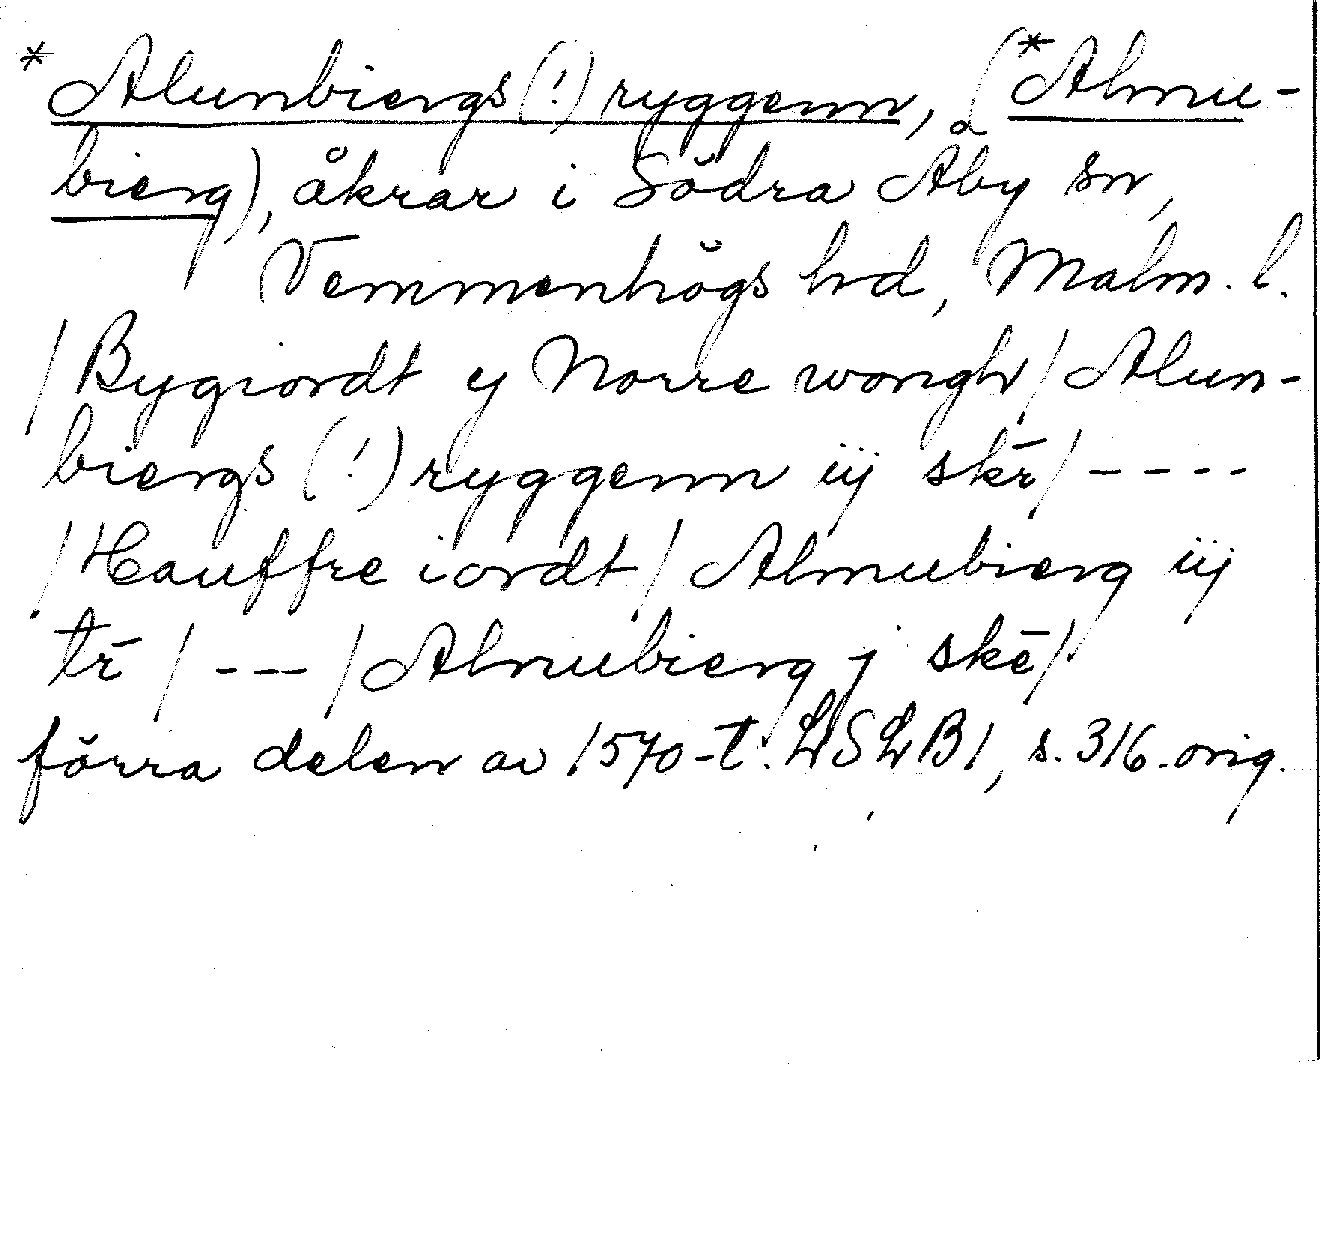 *Alunbiergs(!)ryggenn, (*Almu-
bierg), åkrar i Södra Åby sn,
Vemmenhögs hd, Malm. l.
/Bygiordt y Norre wongh/ Alun-
biergs (!) ryggenn iij skr̄/----
/Hauffre iordt/ Almubierg iij
tr̄ /---/ Almubierg j skē/.
förra delen av 1570-t. LSLB1, s. 316. orig.